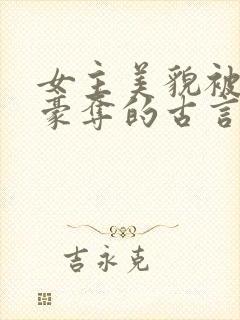 女主美貌被
豪夺的古言
吉永克